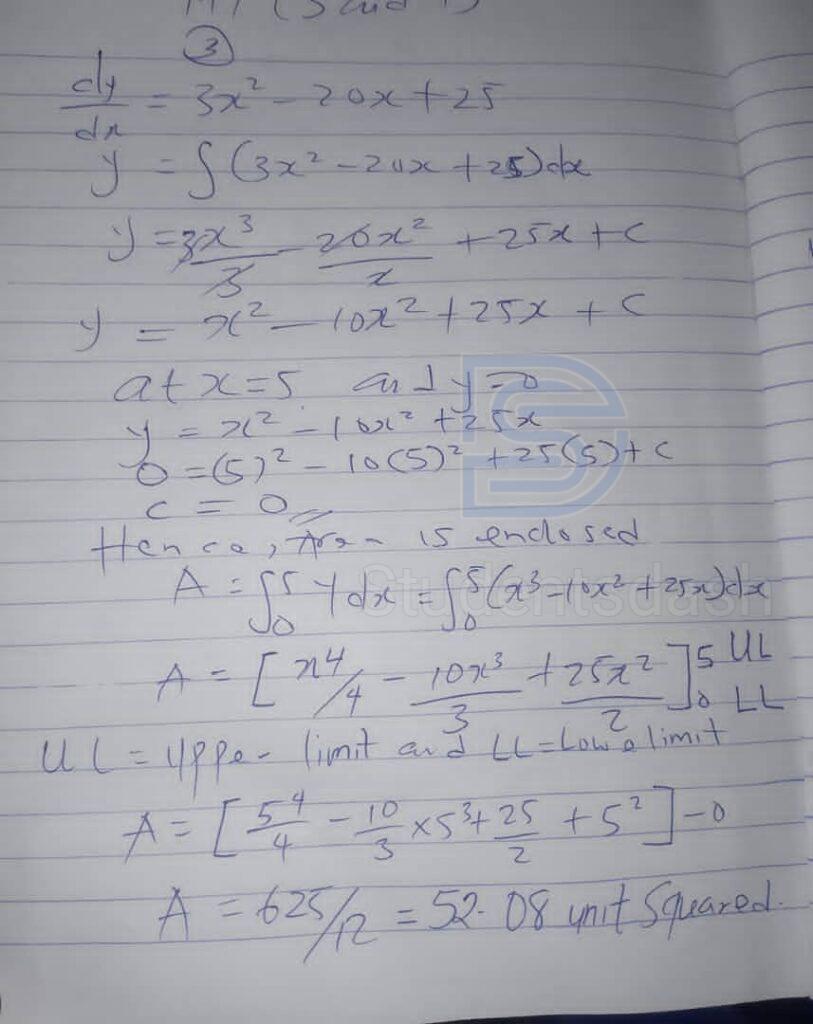 ③
dy/dx = 3x² - 20x + 25
y = ∫(3x² - 20x + 25)dx
y = 3x³/3 - 20x²/2 + 25x + c
y = x² - 10x² + 25x + c
at x=5 and y=0
y = x² - 10x² + 25x
0 = (5)² - 10(5)² + 25(5) + c
c = 0
Hence, is enclosed
A = ∫₀⁵ y dx = ∫₀⁵ (x³ - 10x² + 25x)dx
Studentsdash
A = [x⁴/4 - 10x³/3 + 25x²/2]₀⁵ UL LL
UL = Upper limit and LL = Lowe limit
A = [5⁴/4 - 10/3 × 5³ + 25/2 + 5²] - 0
A = 625/12 = 52.08 unit Squared.